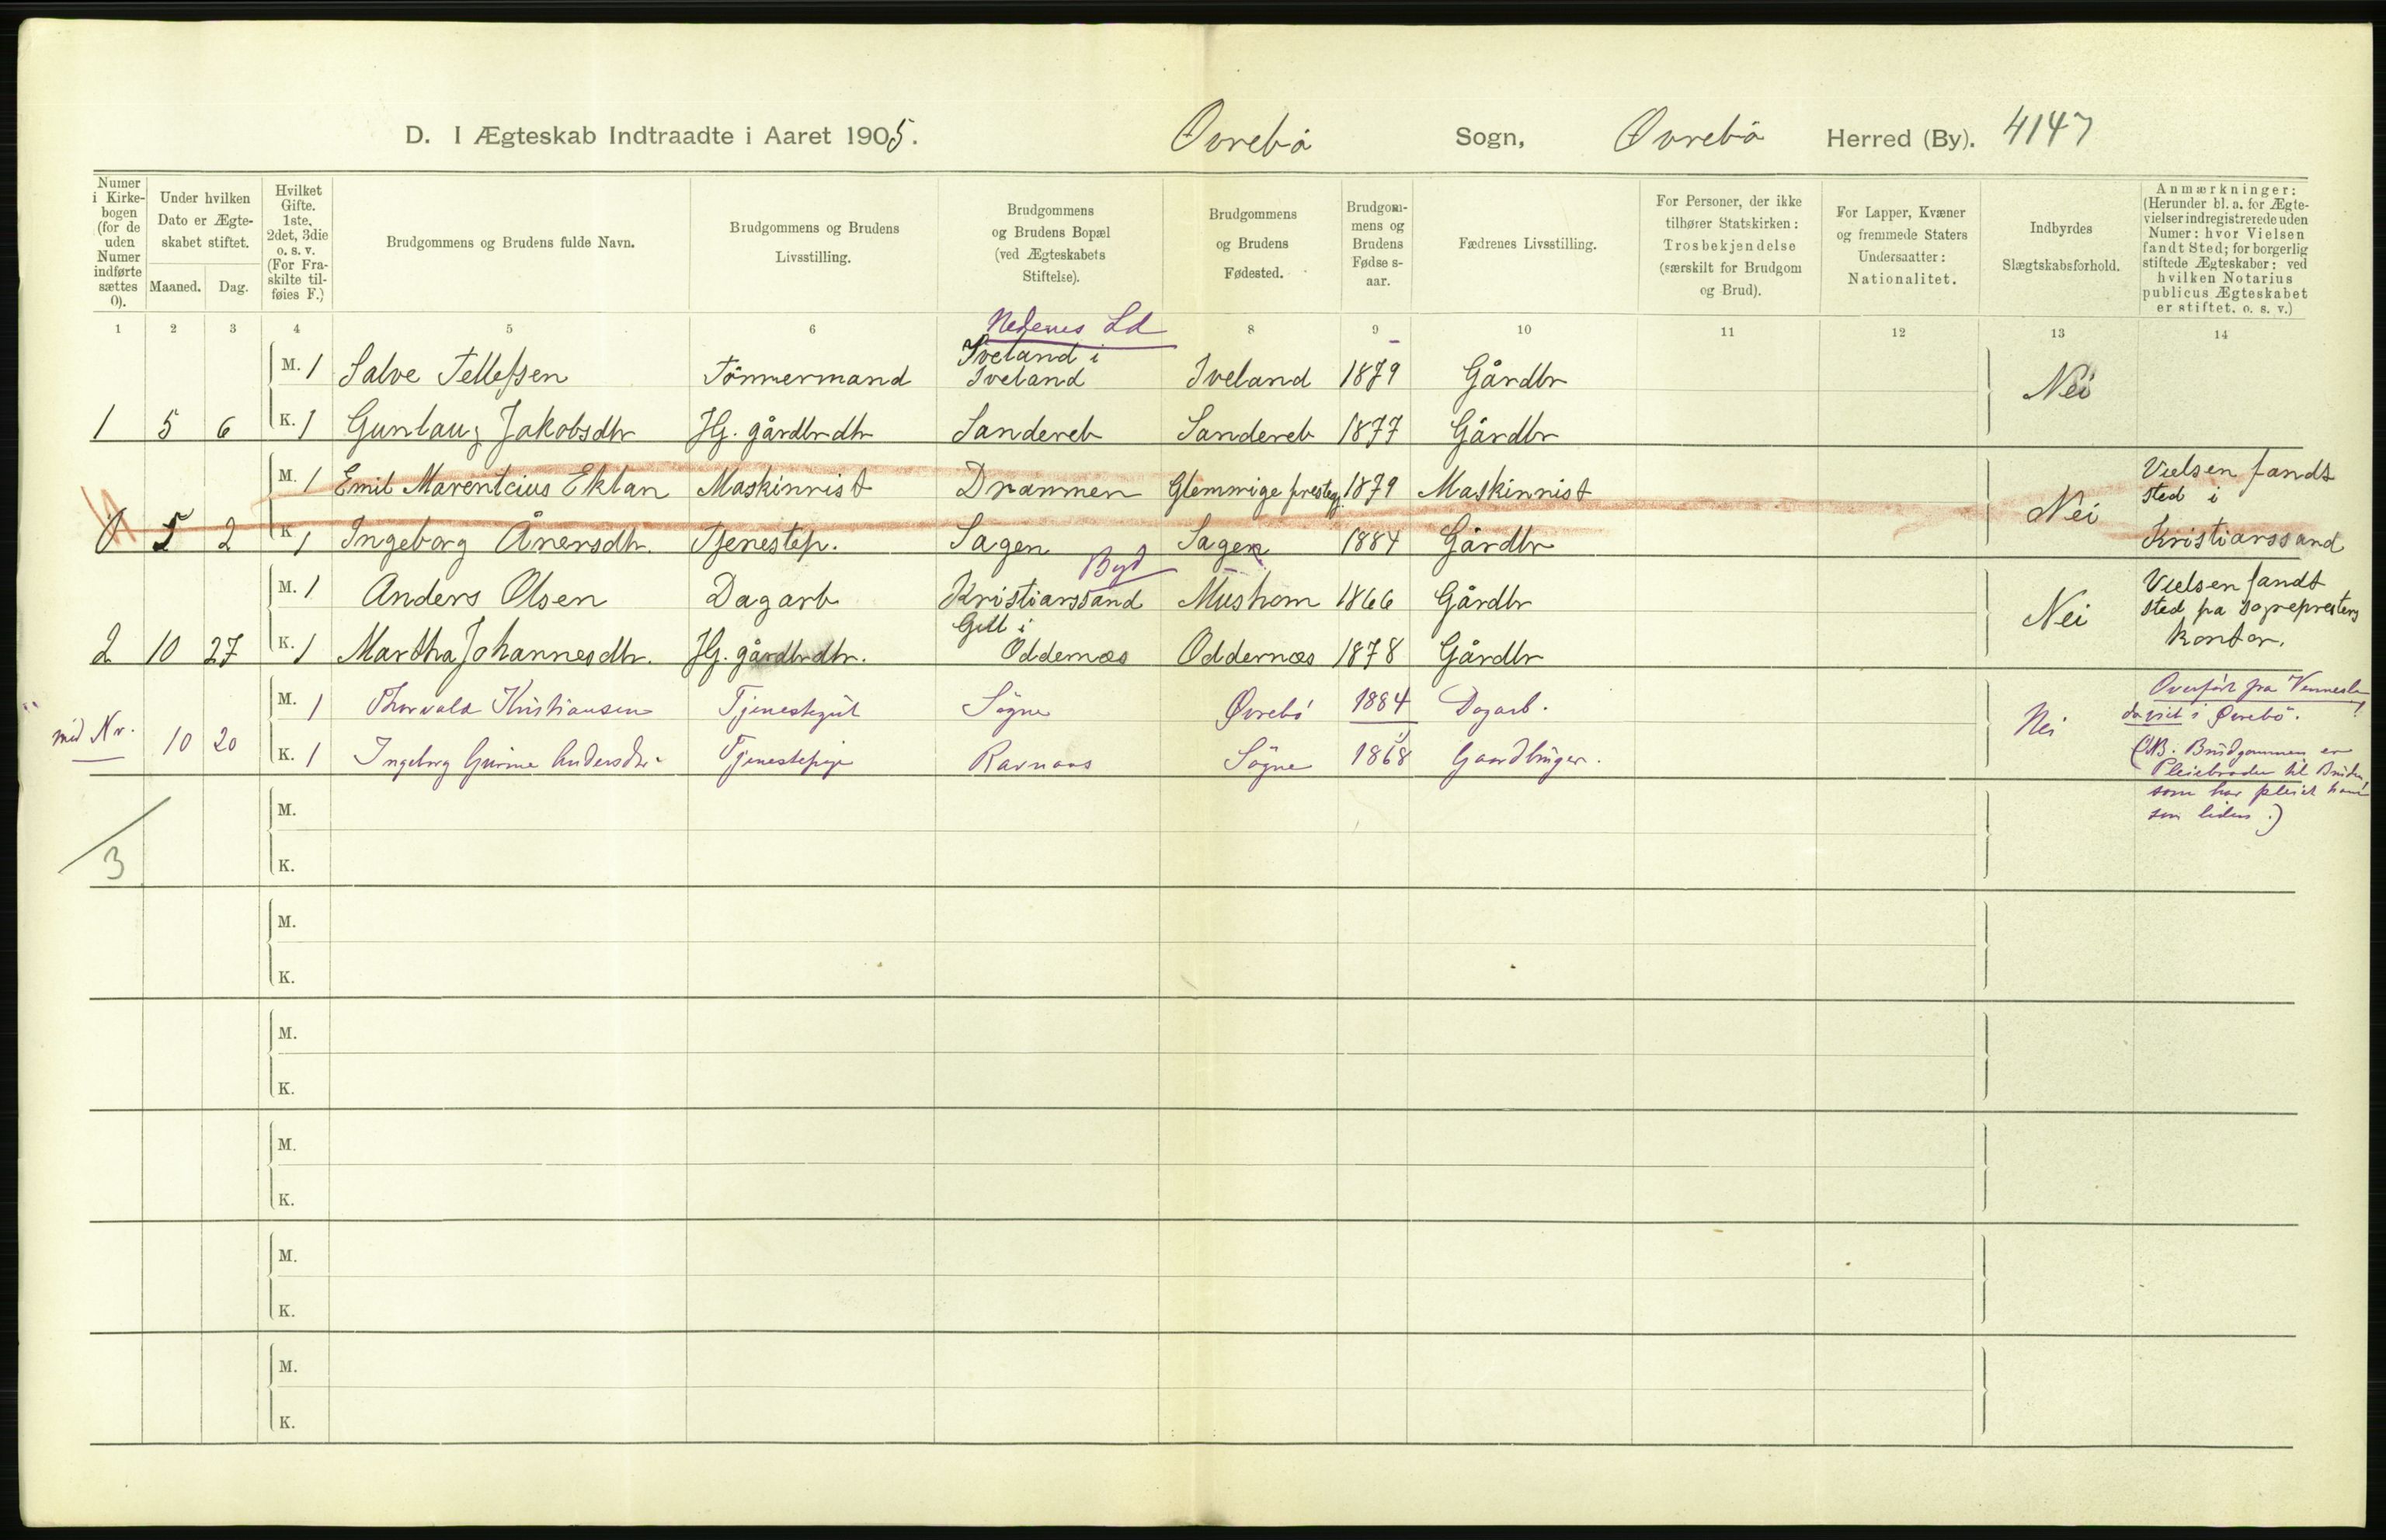 D. I Ægteskab Indtraadte i Aaret 1905. Øvrebö Sogn, Øvrebö Herred (By). 4147
Numer i Kirkebogen (for de uden Numer indførte sættes 0).
Under hvilken Dato er Ægteskabet stiftet.
Maaned. Dag.
Hvilket Gifte. 1ste, 2det, 3die o. s. v. (For Fraskilte tilføies F.)
Brudgommens og Brudens fulde Navn.
Brudgommens og Brudens Livsstilling.
Brudgommens og Brudens Bopæl (ved Ægteskabets Stiftelse).
Brudgommens og Brudens Fødested.
Brudgommens og Brudens Fødse s-aar.
Fædrenes Livsstilling.
For Personer, der ikke tilhører Statskirken: Trosbekjendelse (særskilt for Brudgom og Brud).
For Lapper, Kvæner og fremmede Staters Undersaatter: Nationalitet.
Indbyrdes Slægtskabsforhold.
Anmærkninger: (Herunder bl. a. for Ægtevielser indregistrerede uden Numer: hvor Vielsen fandt Sted; for borgerlig stiftede Ægteskaber: ved hvilken Notarius publicus Ægteskabet er stiftet. o. s. v.)
1 2 3 4 5 6 8 9 10 11 12 13 14
Nedenes Ld
Iveland i
M. 1 Salve Tellefsen Tömmermand Iveland Iveland 1879 Gårdbr Nei
1 5 6 K. 1 Gunlaug Jakobsdtr Hg. gårdbrdtr Sandereb Sandereb 1877 Gårdbr
M. 1 Emil Marentcius Eklan Maskinnist Drammen Glemmige presteg. 1879 Maskinnist Nei Vielsen fandt sted i
0 5 2 K. 1 Ingeborg Ånensdtr. Tjenestep. Sagen Sagen 1884 Gårdbr Kristianssand
Byd
M. 1 Anders Olsen Dagarb Kristianssand Mushom 1866 Gårdbr Nei Vielsen fandt
sted på sogneprestens
Gill i
2 10 27 K. 1 Martha Johannesdtr. Hg. gårdbrdtr. Oddernæs Oddernæs 1878 Gårdbr kontor.
M. 1 Thorvald Kristiansen Tjenestegut Sögne Øvrebö 1884 Dagarb. Nei Overført fra Vennesla
! i Øvrebö.
med Nr. 10 20 K. 1 Ingeborg Gurine Andersdtr. Tjenestepige Ravnaas Sögne 1868 Gaardbruger.
(NB. Brudgommen er
Pleiebroder til Bruden,
som har pleiet ham
som liden.)
3
M.
K.
M.
K.
M.
K.
M.
K.
M.
K.
M.
K.